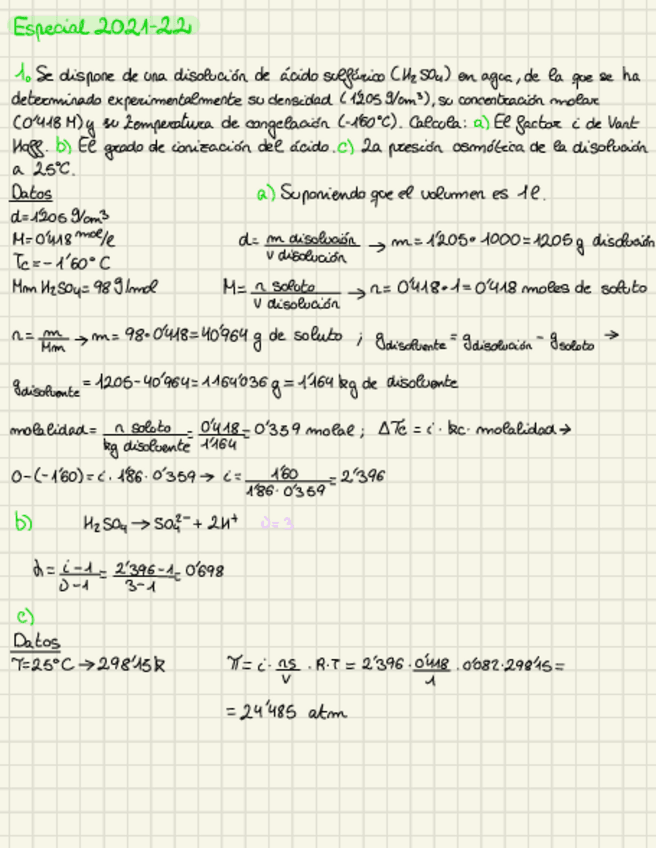 Especial 2021-22
1. Se dispone de una disolución de ácido sulfúrico (H₂SO₄) en agua, de la que se ha
determinado experimentalmente su densidad (1'205 g/cm³), su concentración molar
(0'418 M) y su temperatura de congelación (-1'60°C). Calcula: a) El factor i de Vant
Hoff. b) El grado de ionización del ácido. c) La presión osmótica de la disolución
a 25°C.
Datos
a) Suponiendo que el volumen es 1l.
d=1'205 g/cm³
M=0'418 mol/l
Tc=-1'60°C
Mm H₂SO₄=98 g/mol
d= m disolución / v disolución → m=1'205·1000=1205 g disolución
M= n soluto / v disolución → n=0'418·1=0'418 moles de soluto
n= m/Mm → m=98·0'418=40'964 g de soluto ; g disolvente = g disolución - g soluto →
g disolvente = 1205-40'964=1164'036 g=1'164 kg de disolvente
molalidad= n soluto / kg disolvente = 0'418/1'164 = 0'359 molal ; ΔTc = i · kc · molalidad →
0-(-1'60)=i·1'86·0'359 → i= 1'60 / 1'86·0'359 = 2'396
b) H₂SO₄ → SO₄²⁻ + 2H⁺ υ=3
α= i-1 / υ-1 = 2'396-1 / 3-1 = 0'698
c)
Datos
T=25°C → 298'15k
π= i · ns/v · R·T = 2'396 · 0'418/1 · 0'082·298'15=
= 24'485 atm